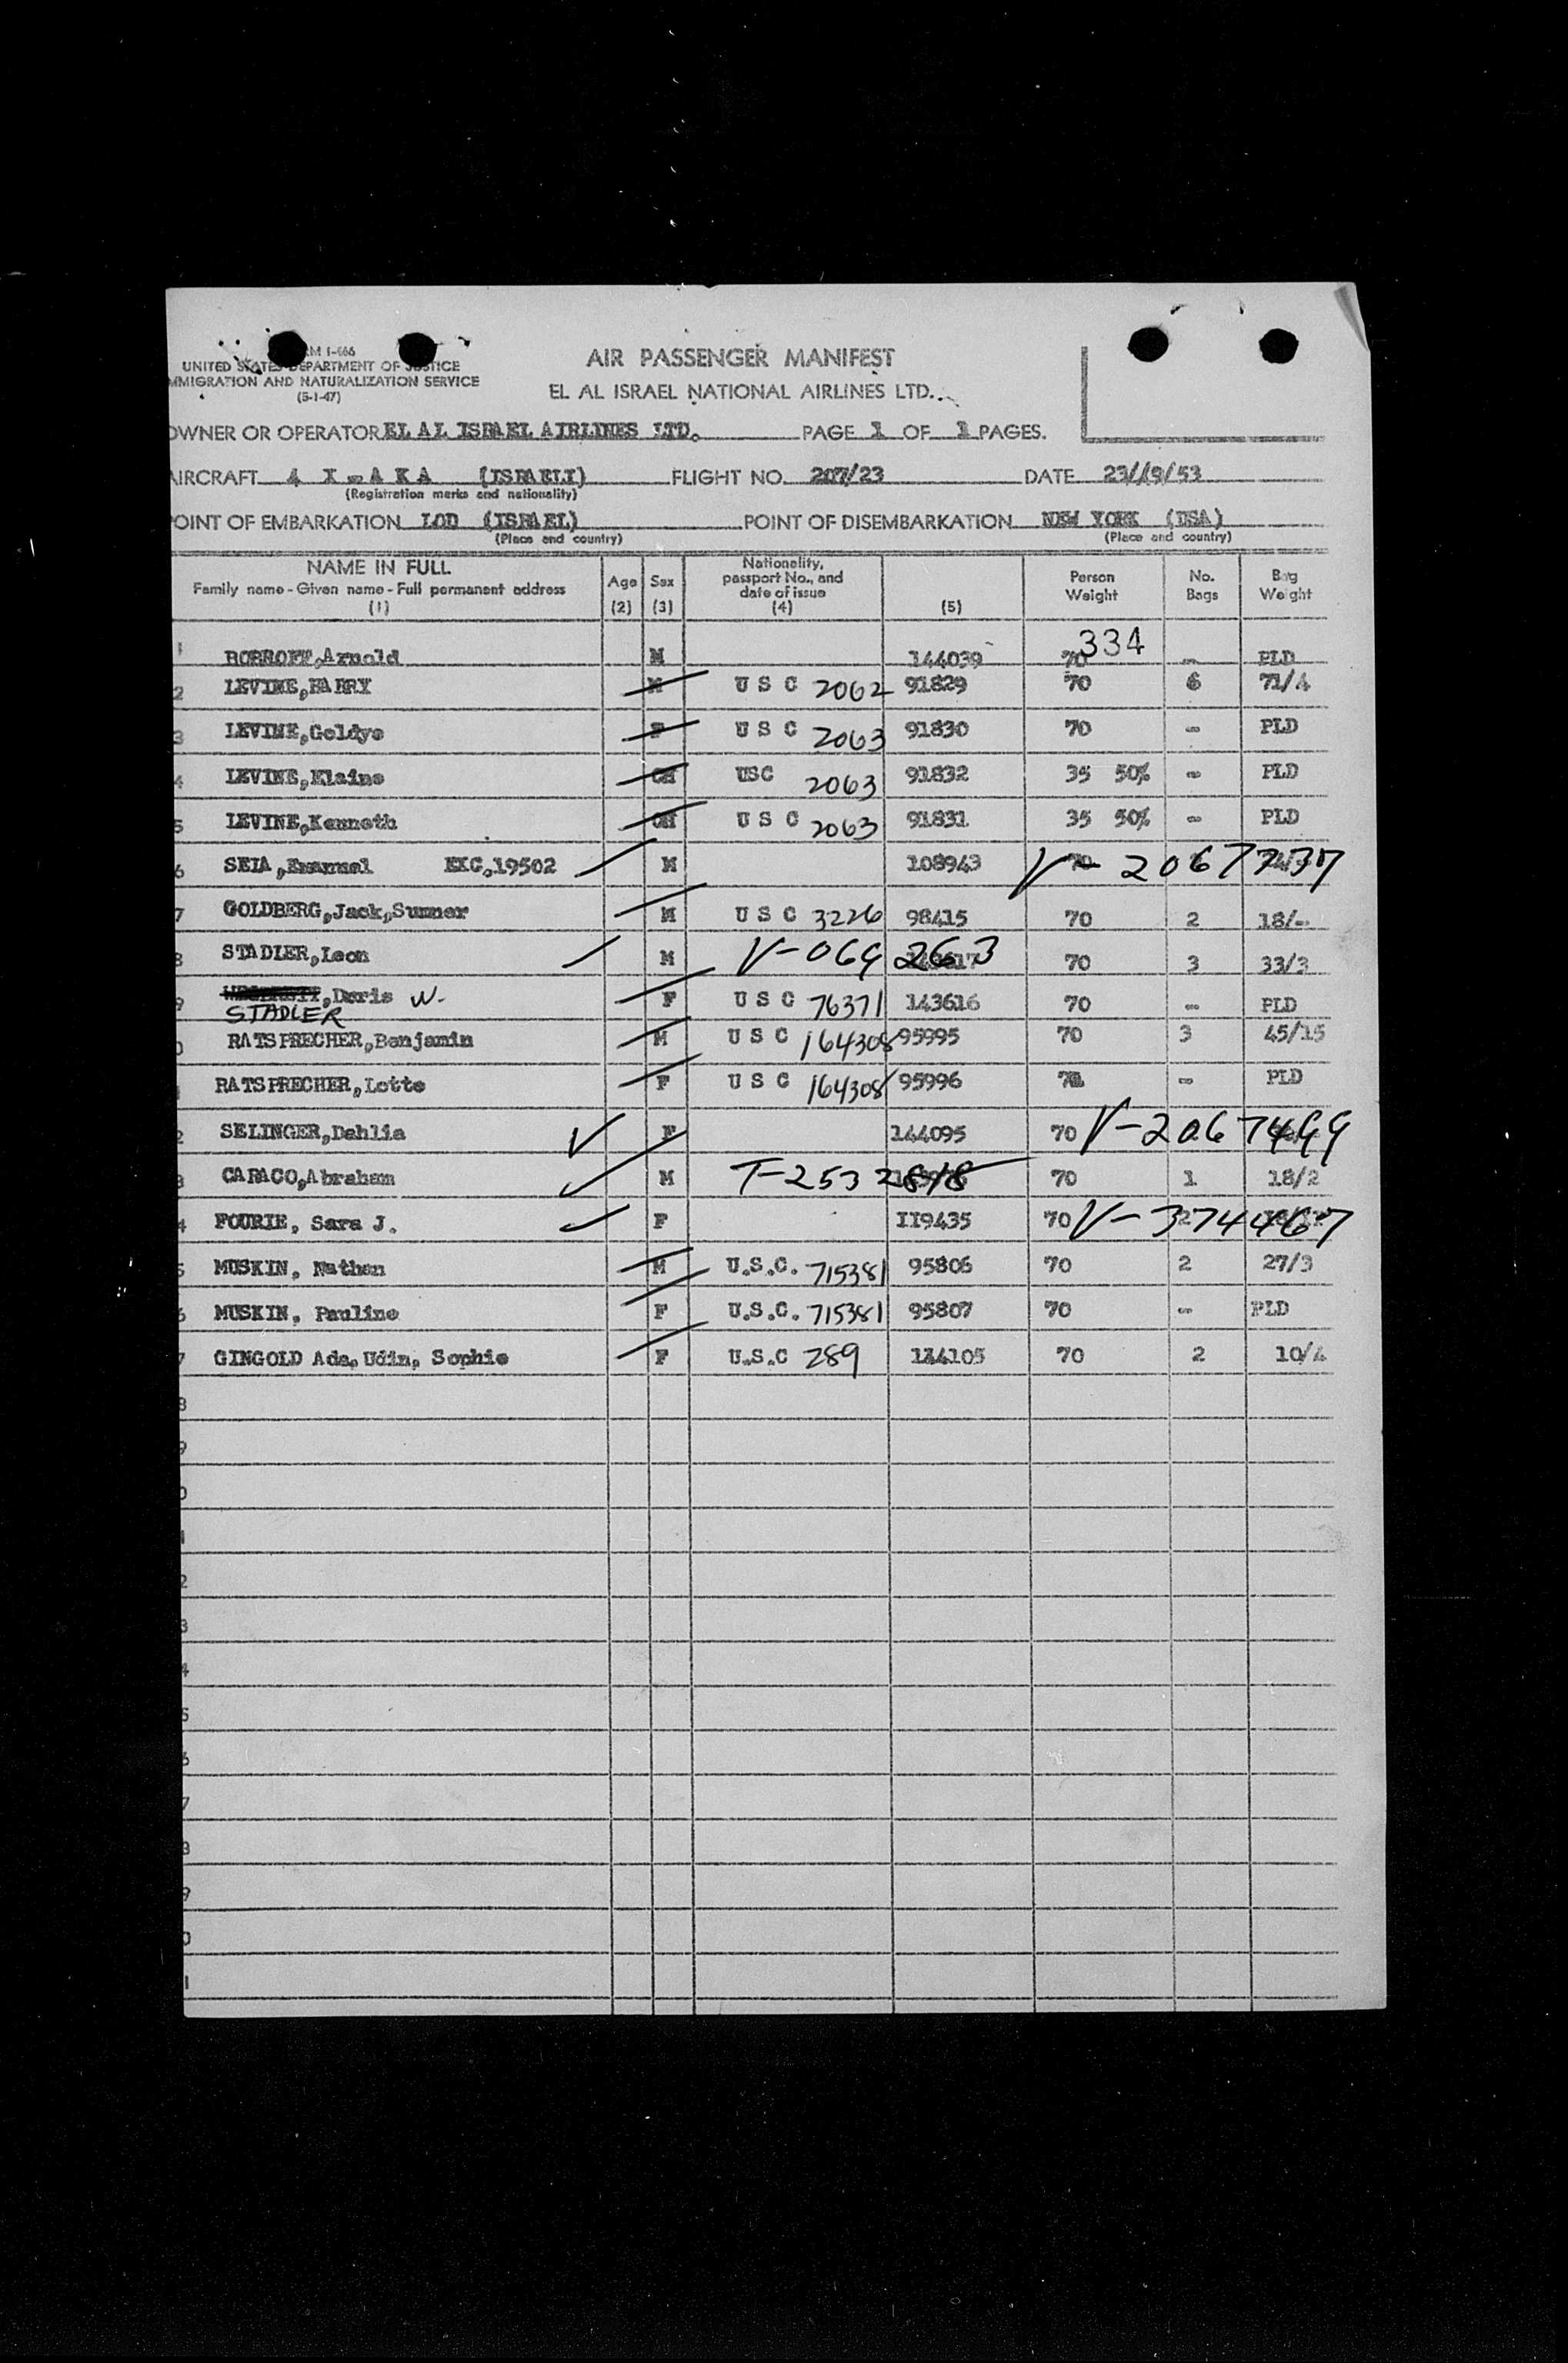 RM I-466
UNITED STATES DEPARTMENT OF JUSTICE
MMIGRATION AND NATURALIZATION SERVICE
(5-1-47)
AIR PASSENGER MANIFEST
EL AL ISRAEL NATIONAL AIRLINES LTD.
OWNER OR OPERATOR EL AL ISRAEL AIRLINES LTD. PAGE 1 OF 1 PAGES.
AIRCRAFT 4 X - A K A (ISRAELI) FLIGHT NO. 207/23 DATE 23//9/53
(Registration marks and nationality)
OINT OF EMBARKATION LOD (ISRAEL) POINT OF DISEMBARKATION NEW YORK (USA)
(Place and country) (Place and country)
NAME IN FULL Family name - Given name - Full permanent address (1) Age (2) Sex (3) Nationality, passport No., and date of issue (4) (5) Person Weight No. Bags Bag Weight
334
1 BOBROFF,Arnold M 144039 70 - PLD
2 LEVINE,HARRY M U S C 2062 91829 70 6 71/4
3 LEVINE,Goldye F U S C 2063 91830 70 - PLD
4 LEVINE,Elaine CH USC 2063 91832 35 50% - PLD
5 LEVINE,Kenneth CH U S C 2063 91831 35 50% - PLD
6 SEIA,Emanuel EXC.19502 M 108943 70 V-2067737
7 GOLDBERG,Jack,Sumner M U S C 3226 98415 70 2 18/-
8 STADLER,Leon M V-069263 70 3 33/3
9 ,Doris W. F U S C 76371 143616 70 - PLD
STADLER
0 RATSPRECHER,Benjamin M U S C 164308 95995 70 3 45/15
RATSPRECHER,Lotte F U S C 164308 95996 70 - PLD
2 SELINGER,Dahlia F 144095 70 V-2067499
3 CARACO,Abraham M T-2532818 70 1 18/2
4 FOURIE, Sara J. F II9435 70 2 V-374467
5 MUSKIN, Nathan M U.S.C. 715381 95806 70 2 27/3
6 MUSKIN, Pauline F U.S.C. 715381 95807 70 - PLD
7 GINGOLD Ada, Udin, Sophie F U.S.C 289 144105 70 2 10/4
8
9
0
1
2
3
4
5
6
7
8
9
0
1